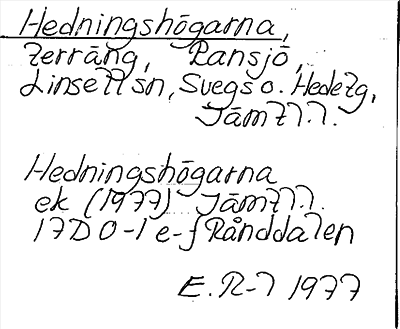 Hedningshögarna,
terräng, Ransjö,
Linsell sn, Svegs o. Hede tg,
Jämtl.l.
Hedningshögarna
ek (1977) Jämtl.l.
17D 0-1 e-f Rånddalen
E. R-l 1977